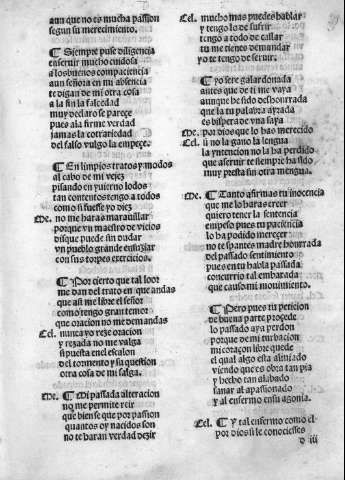 aun que no es mucha passion
segun su merecimiento.
¶ Siempre puse diligencia
en seruir mucho cuidosa
a los buenos com paciencia
aun señora en mi absencia
te digan de mi otra cosa
a la fin la falcedad
muy declaro se parece
pues a la firme verdad
jamas la cotrariedad
del falso vulgo la empeçe.
¶ En limpios tratos y modos
al cabo de mi vejez
pisando en yuierno lodos
tan contentos tengo a todos
como si fuesse yo diez
Me. no me haras marauillar
porque vn maestro de vicios
dizque puede sin dudar
vn pueblo grande ensuziar
con sus torpes exercicios.
¶ Por cierto que tal loor
me dan del trato en que andas
que assi me libre el señor
como tengo gran temor
que oracion no me demandas
Cel. nunca yo reze oracion
y rezada no me valga
si puesta en el escalon
del tormento y su question
otra cosa de mi salga.
Me. ¶ Mi passada alteracion
no me permite reir
que bien se que por passion
quantos oy nacidos son
no te haran verdad dezir
Cel. mucho mas puedes hablar
y tengo lo de sufrir
tengo a todo de callar
tu me tienes de mandar
yo te tengo de seruir.
¶ yo sere galardonada
antes que de ti me vaya
aunque he sido deshonrrada
que la tu palabra ayrada
es bispera de vna saya
Me. por dios que lo has merecido
Cel. si no la gano la lengua
la yntencion no la ha perdido
que a seruir te siempre ha sido
muy presta sin otra mengua.
Me. ¶ Tanto afirmas tu inocencia
que me lo haras creer
quiero tener la sentencia
en peso pues tu paciencia
lo ha podido merecer
no te spantes madre honrrada
del passado sentimiento
pues en tu habla passada
concurrio tal embarada
que causo mi mouimiento.
¶ Pero pues tu peticion
de buena parte procede
lo passado aya perdon
porque de mi turbacion
mi coraçon libre quede
el qual algo esta aliuiado
viendo que es obra tan pia
y hecho tan alabado
sanar al apassionado
y al enfermo en su agonia.
Cel. ¶ y tal enfermo como el
por dios si le conociesses
d iii